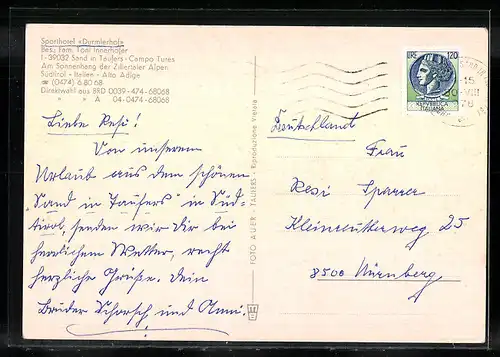 Sporthotel «Durmlerhof»
Bes. Fam. Toni Innerhofer
I-39032 Sand in Taufers - Campo Tures
Am Sonnenhang der Zillertaler Alpen
Südtirol - Italien - Alto Adige
☎ (0474) 6 80 68
Direktwahl aus BRD 0039-474-68068
" " A 04-0474-68068
Liebe Resi!
Von unserem
Urlaub aus dem schönen
"Sand in Taufers" in Süd-
tirol, senden wir Dir bei
herrlichem Wetter, recht
herzliche Grüße. Dein
Bruder Schorsch und Anni.
FOTO AUER - TAUFERS - Riproduzione vietata
LIRE 120
REPVBBLICA
ITALIANA
15
30-VIII
78
Deutschland
Frau
Resi Sparrer
Kleinreutherweg 25
8500 Nürnberg